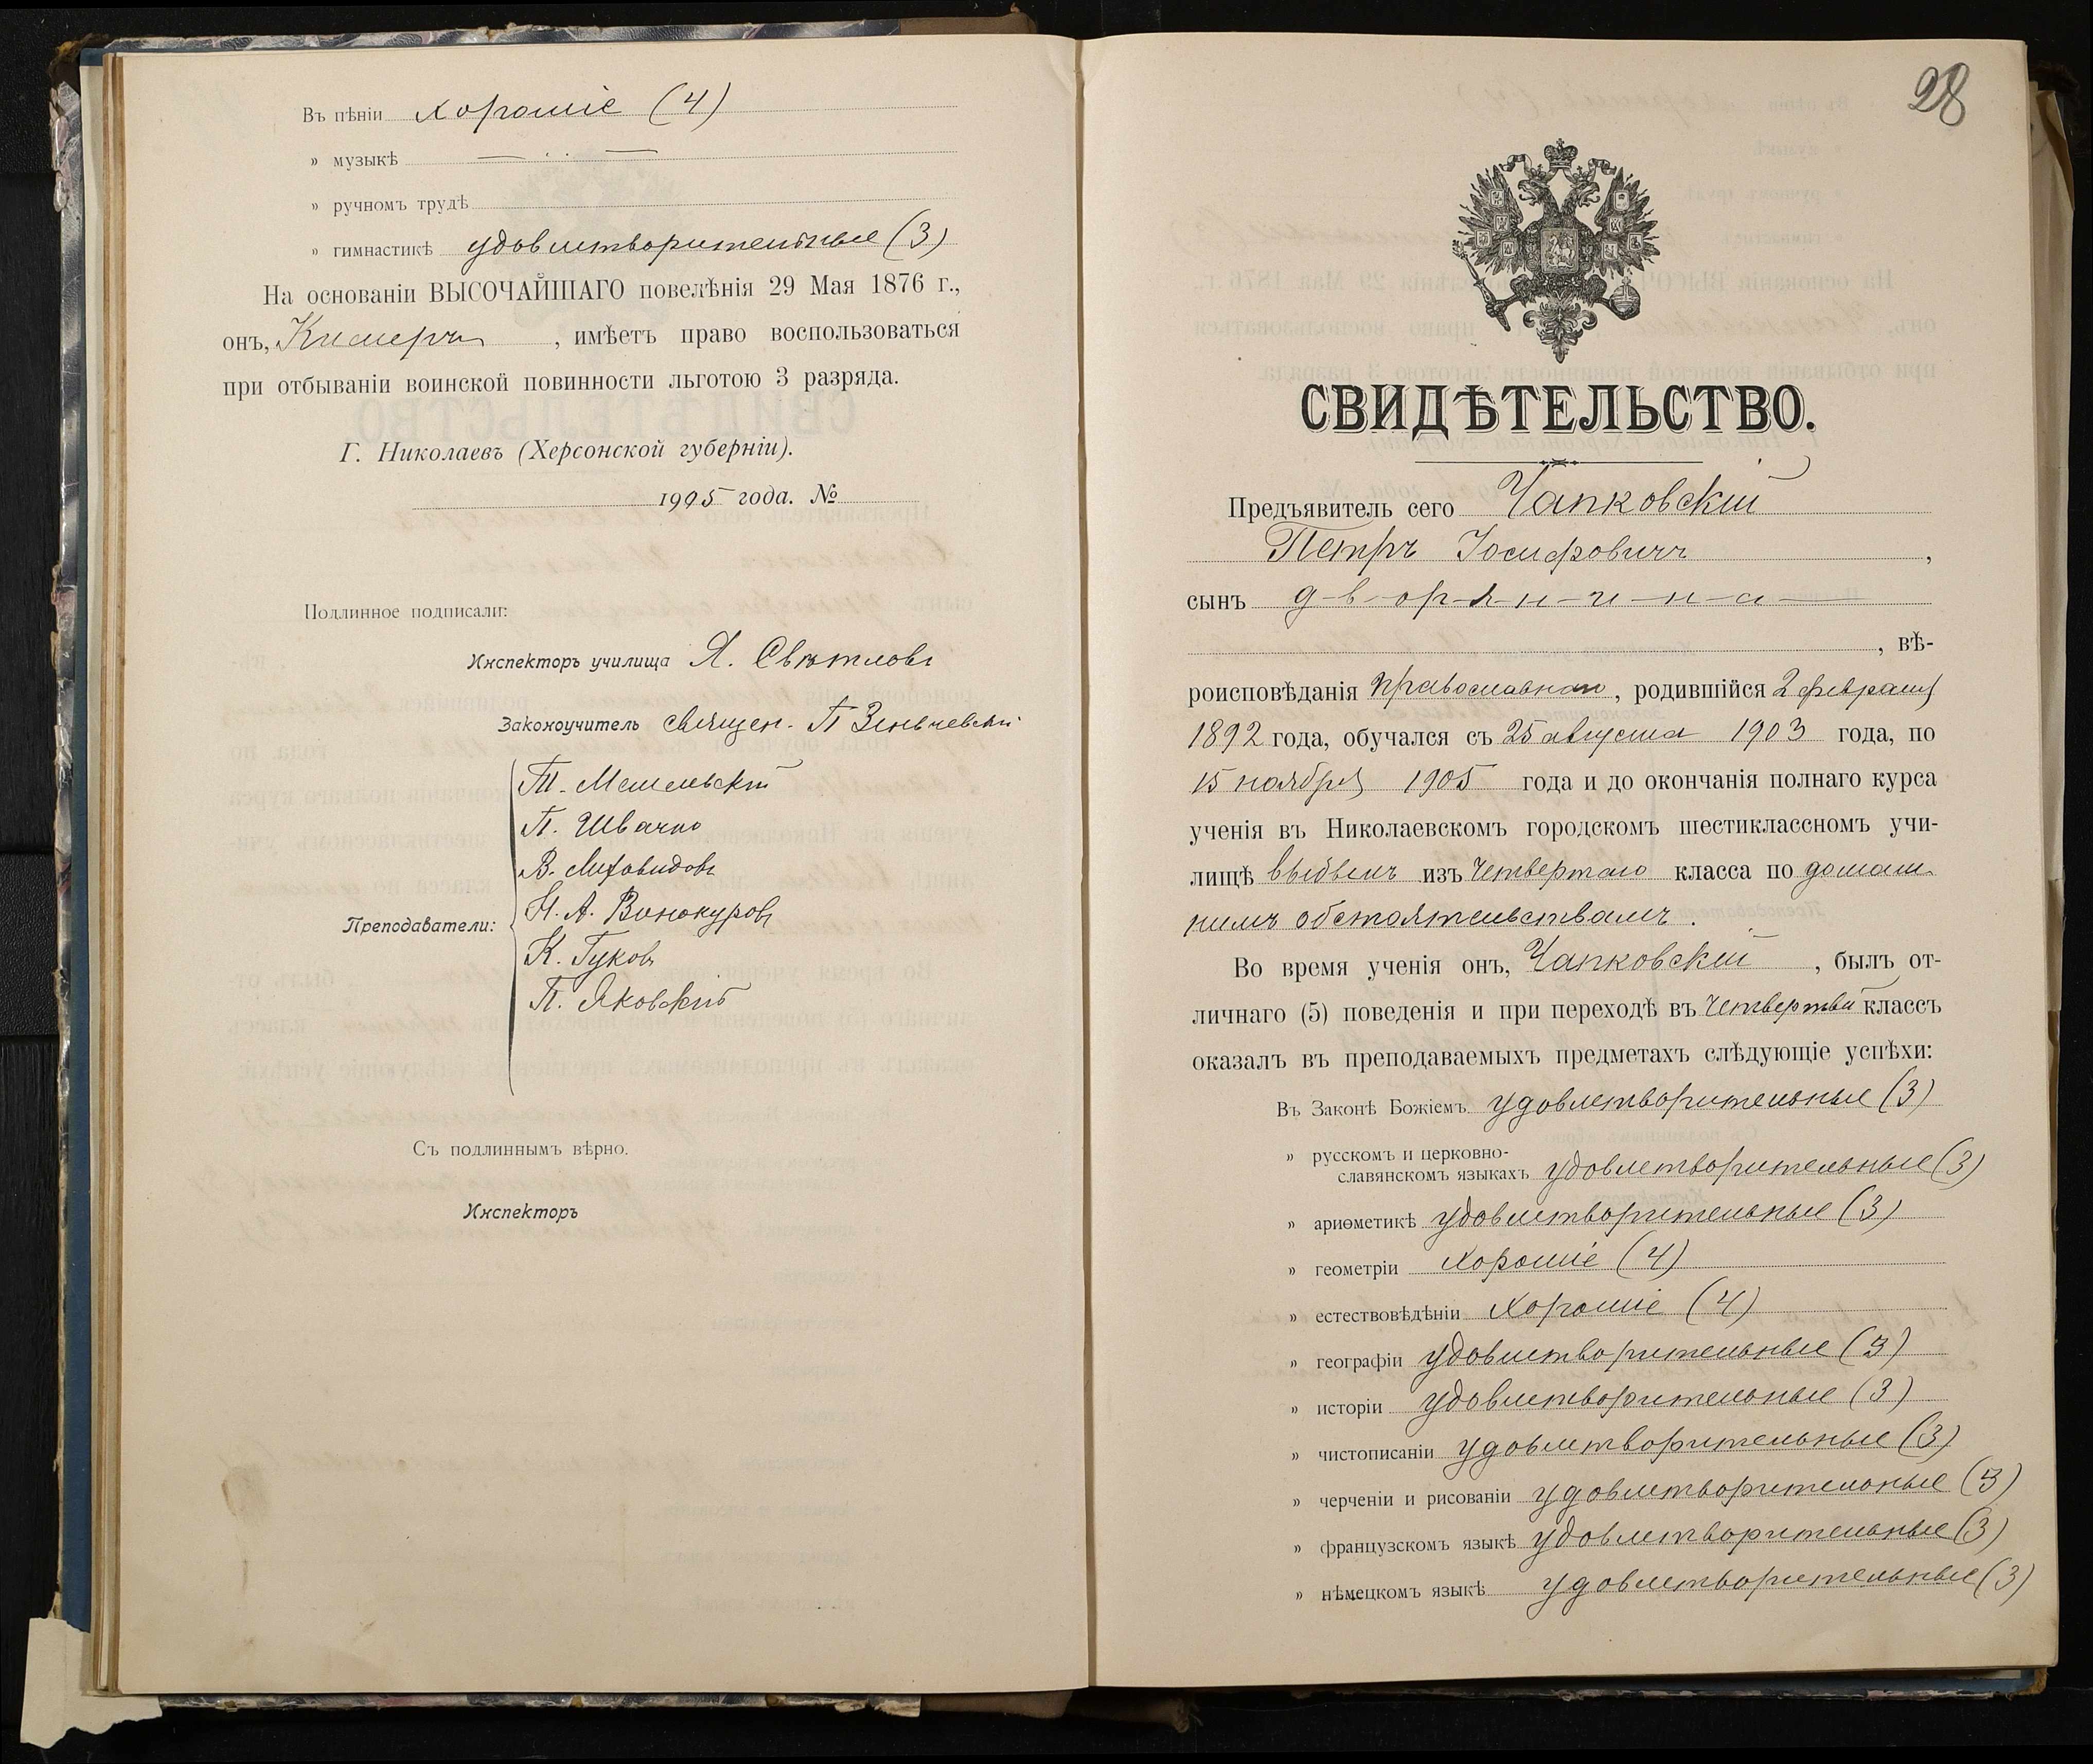 Въ пѣніи хорошіе (4)
» музыкѣ — · · —
» ручномъ трудѣ
» гимнастикѣ удовлетворительные (3)
На основаніи ВЫСОЧАЙШАГО повелѣнія 29 Мая 1876 г.,
онъ, , имѣетъ право воспользоваться
при отбываніи воинской повинности льготою 3 разряда.
Г. Николаевъ (Херсонской губерніи).
1905 года. №
Подлинное подписали:
Инспекторъ училища Я. Свѣтловъ
Законоучитель священ. П
П. Швачко
Н. А. Винокуровъ
Преподаватели:
К. Гуковъ
П. Яковскій
Съ подлиннымъ вѣрно.
Инспекторъ
28
СВИДѢТЕЛЬСТВО.
Предъявитель сего Чапковскій
Петръ Іосифовичъ,
сынъ дворянина
, вѣ-
роисповѣданія православнаго, родившійся 2 февраля
1892 года, обучался съ 25 августа 1903 года, по
15 ноября 1905 года и до окончанія полнаго курса
ученія въ Николаевскомъ городскомъ шестиклассномъ учи-
лищѣ выбылъ изъ четвертаго класса по домаш-
нимъ обстоятельствамъ.
Во время ученія онъ, Чапковскій, былъ от-
личнаго (5) поведенія и при переходѣ въ четвертый классъ
оказалъ въ преподаваемыхъ предметахъ слѣдующіе успѣхи:
Въ Законѣ Божіемъ удовлетворительные (3)
» русскомъ и церковно-
славянскомъ языкахъ удовлетворительные (3)
» ариѳметикѣ удовлетворительные (3)
» геометріи хорошіе (4)
» естествовѣдѣніи хорошіе (4)
» географіи удовлетворительные (3)
» исторіи удовлетворительные (3)
» чистописаніи удовлетворительные (3)
» черченіи и рисованіи удовлетворительные (3)
» французскомъ языкѣ удовлетворительные (3)
» нѣмецкомъ языкѣ удовлетворительные (3)